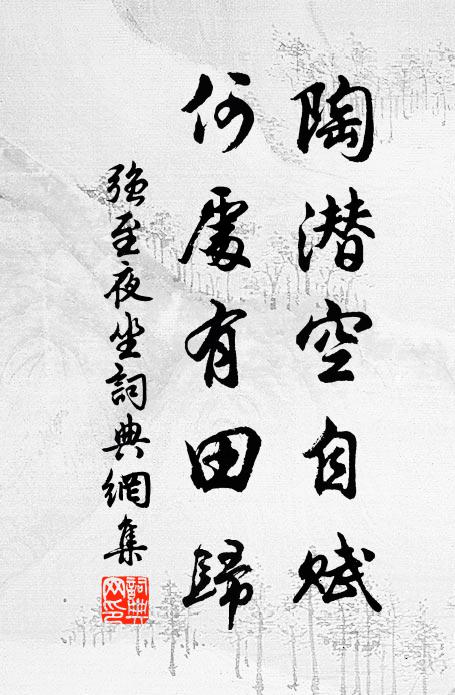 陶潜空自賦
何處有田歸
強至夜坐詞典網集
詞典網印